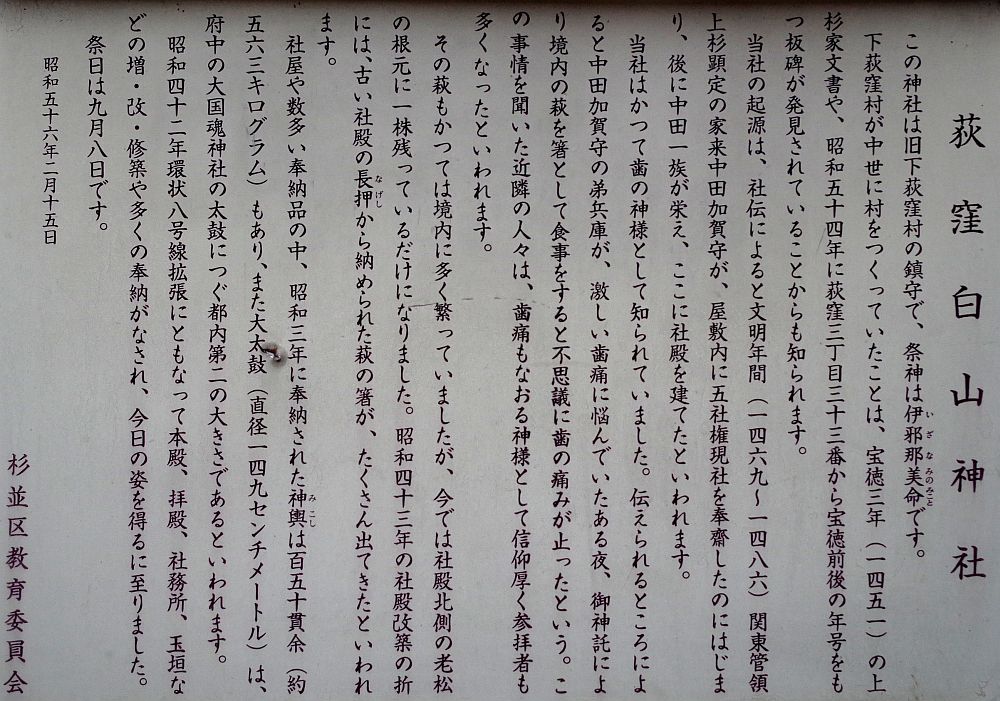 荻窪白山神社
この神社は旧下荻窪村の鎮守で、祭神は伊邪那美命です。
いざなみのみこと
下荻窪村が中世に村をつくっていたことは、宝徳三年（一四五一）の上
杉家文書や、昭和五十四年に荻窪三丁目三十三番から宝徳前後の年号をも
つ板碑が発見されていることからも知られます。
当社の起源は、社伝によると文明年間（一四六九〜一四八六）関東管領
上杉顕定の家来中田加賀守が、屋敷内に五社権現社を奉齋したのにはじま
り、後に中田一族が栄え、ここに社殿を建てたといわれます。
当社はかつて歯の神様として知られていました。伝えられるところによ
ると中田加賀守の弟兵庫が、激しい歯痛に悩んでいたある夜、御神託によ
り境内の萩を箸として食事をすると不思議に歯の痛みが止ったという。こ
の事情を聞いた近隣の人々は、歯痛もなおる神様として信仰厚く参拝者も
多くなったといわれます。
その萩もかつては境内に多く繁っていましたが、今では社殿北側の老松
の根元に一株残っているだけになりました。昭和四十三年の社殿改築の折
には、古い社殿の長押から納められた萩の箸が、たくさん出てきたといわれ
なげし
ます。
社屋や数多い奉納品の中、昭和三年に奉納された神輿は百五十貫余（約
みこし
五六三キログラム）もあり、また大太鼓（直径一四九センチメートル）は、
府中の大国魂神社の太鼓につぐ都内第二の大きさであるといわれます。
昭和四十二年環状八号線拡張にともなって本殿、拝殿、社務所、玉垣な
どの増・改・修築や多くの奉納がなされ、今日の姿を得るに至りました。
祭日は九月八日です。
昭和五十六年二月十五日
杉並区教育委員会